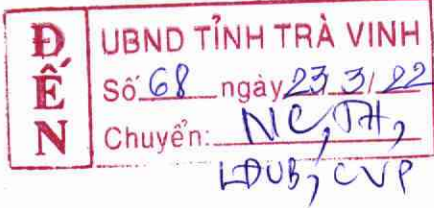 ĐẾN
UBND TỈNH TRÀ VINH
Số 68 ngày 23/3/22
Chuyển: NC, TH,
LĐUB, CVP